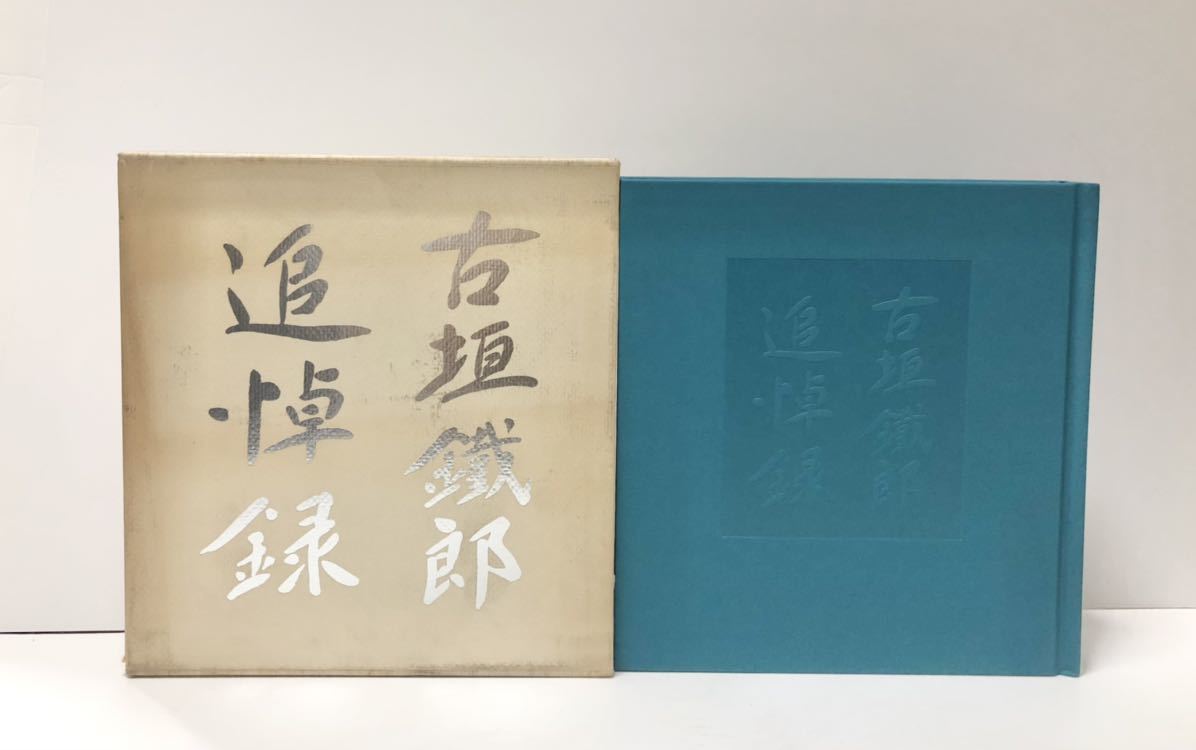 古垣鐵郎
追悼録
古垣鐵郎
追悼録